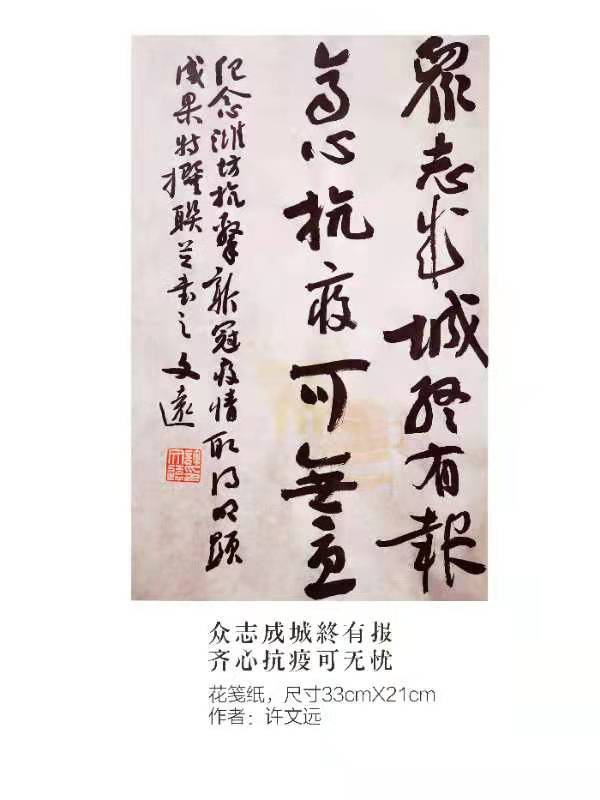 眾志成城終有報
齊心抗疫可無憂
紀念濰坊抗擊新冠疫情取得明顯
成果特撰聯并書之文遠
众志成城終有报
齐心抗疫可无忧
花笺纸，尺寸33cmX21cm
作者：许文远